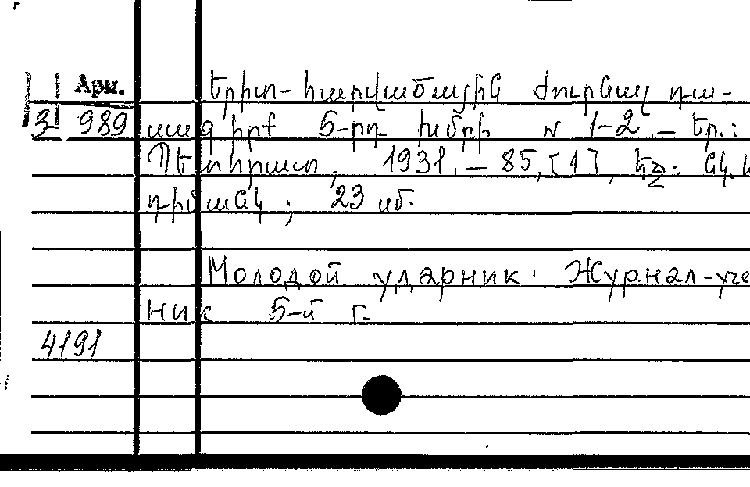 Арм. երիտ-հարվածային ժուրնալ դա-
3 989 սագիրք 5-րդ խմբի № 1-2 _ Եր.:
Պետհրատ, 1931. – 85, [1], եջ: նկ.
դիմանկ; 23 սմ.
Молодой ударник. Журнал-уче
ник 5-й г.
4191